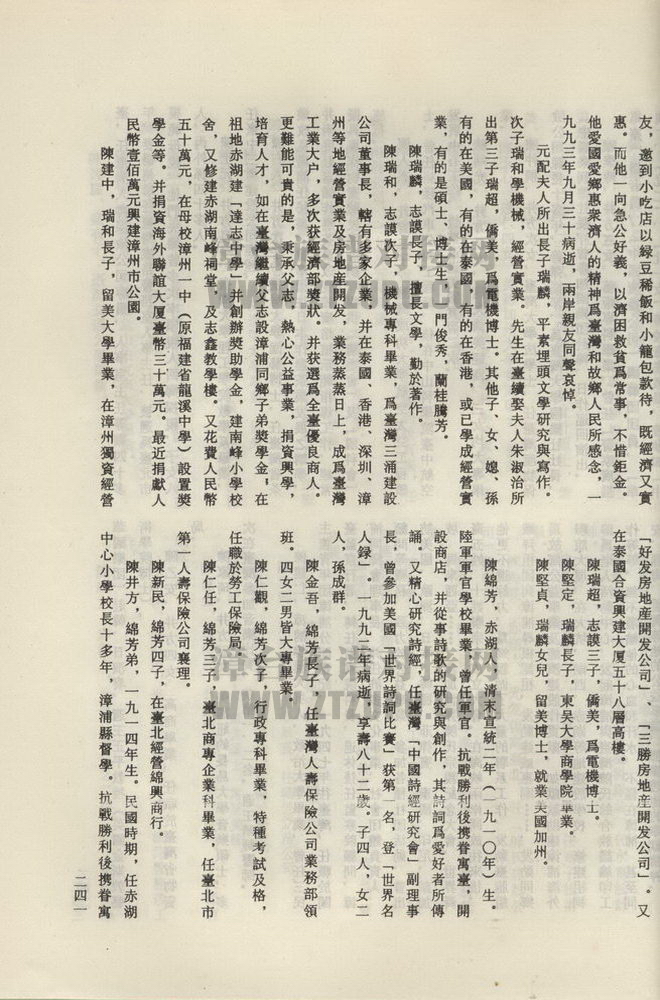 友，邀到小吃店以緑豆稀飯和小籠包款待，既經濟又實
惠。而他一向急公好義，以濟困救貧爲常事，不惜鉅金。
他愛國愛鄉惠衆濟人的精神爲臺灣和故鄉人民所感念，一
九九三年九月三十病逝，兩岸親友同聲哀悼。
元配夫人所出長子瑞麟，平素埋頭文學研究與寫作。
次子瑞和學機械，經營實業。先生在臺續娶夫人朱淑治所
出第三子瑞超，僑美，爲電機博士。其他子、女、媳、孫
有的在美國，有的在泰國，有的在香港，或已學成經營實
業，有的是碩士、博士生，一門俊秀，蘭桂騰芳。
陳瑞麟，志謨長子，擅長文學，勤於著作。
陳瑞和，志謨次子，機械專科畢業，爲臺灣三涌建設
公司董事長，轄有多家企業，并在泰國、香港、深圳、漳
州等地經營實業及房地産開发，業務蒸蒸日上，成爲臺灣
工業大户，多次获經濟部奬狀。并获選爲全臺優良商人。
更難能可貴的是，秉承父志，熱心公益事業，捐資興學，
培育人才，如在臺灣繼續父志設漳浦同鄉子弟奬學金，在
祖地赤湖建「達志中學」并創辦奬助學金，建南峰小學校
舍，又修建赤湖南峰祠堂，及志鑫教學樓。又花費人民幣
五十萬元，在母校漳州一中（原福建省龍溪中學）設置奬
學金等。并捐資海外聯誼大厦臺幣三十萬元。最近捐獻人
民幣壹佰萬元興建漳州市公園。
陳建中，瑞和長子，留美大學畢業，在漳州獨資經營
「好发房地産開发公司」、「三勝房地産開发公司」。又
在泰國合資興建大厦五十八層高樓。
陳瑞超，志謨三子，僑美，爲電機博士。
陳堅定，瑞麟長子，東吴大學商學院畢業。
陳堅貞，瑞麟女兒，留美博士，就業美國加州。
陳綿芳，赤湖人，清末宣統二年（一九一〇年）生。
陸軍軍官學校畢業，曾任軍官。抗戰勝利後携眷寓臺，開
設商店，并從事詩歌的研究與創作，其詩詞爲愛好者所傳
誦。又精心研究詩經，任臺灣「中國詩經研究會」副理事
長，曾參加美國「世界詩詞比賽」获第一名，登「世界名
人録」。一九九二年病逝，享壽八十二歲。子四人，女二
人，孫成群。
陳金吾，綿芳長子，任臺灣人壽保險公司業務部領
班。四女二男皆大專畢業。
陳仁觀，綿芳次子，行政專科畢業，特種考試及格，
任職於勞工保險局。
陳仁任，綿芳三子，臺北商專企業科畢業，任臺北市
第一人壽保險公司襄理。
陳新民，綿芳四子，在臺北經營綿興商行。
陳井方，綿芳弟，一九一四年生。民國時期，任赤湖
中心小學校長十多年，漳浦縣督學。抗戰勝利後携眷寓
二四一